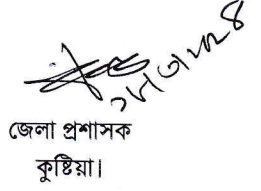 জেলা প্রশাসক
কুষ্টিয়া।